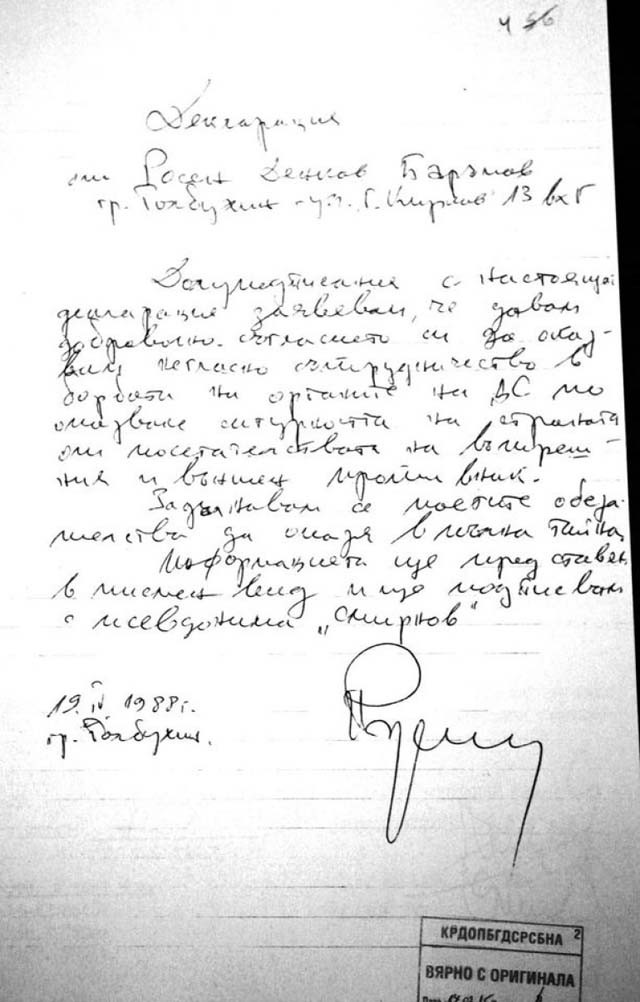 Декларация
от Росен Денков Баръмов
гр. Толбухин - ул. Г. Кирков 13 вх Г
Долуподписания с настояща
декларация заявевам, че давам
доброволно съгласието си да оказ-
вам негласно сътрудничество в
борбата на органите на ДС по
опазване сигурността на страната
от посегателствата на вътреш-
ния и външен противник.
Задължавам се поетите обеза-
телства да опазя в пълна тайна.
Информацията ще представям
в писмен вид и ще подписвам
с псевдонима „Смирнов"
19. IV. 1988 г.
гр. Толбухин.
КРДОПБГДСРСБНА 2
ВЯРНО С ОРИГИНАЛА